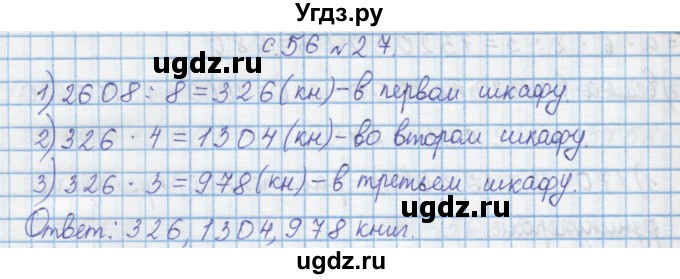 Угдз.ру
с. 56 № 27.
ugdz.ru
1) 2608 : 8 = 326 (кн) - в первом шкафу.
2) 326 · 4 = 1304 (кн) - во втором шкафу.
ugdz.ru
3) 326 · 3 = 978 (кн) - в третьем шкафу.
ugdz.ru
Ответ: 326, 1304, 978 книг.
ugdz.ru